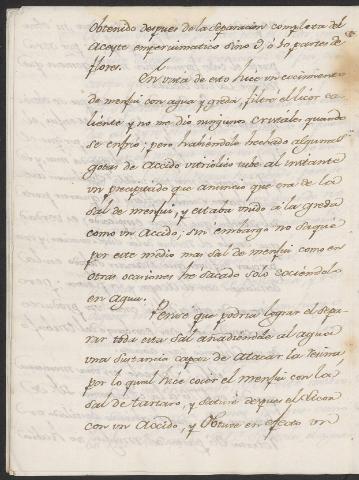 obtenido despues de la separacion completa del
Aceyte empireumatico sino 9, ó 10 partes de
flores.
En vista de esto hice un cocimiento
de menjui con agua y greda, filtré el licor ca
liente y no me dio ningunos crystales quando
se enfrio; pero habiendole hechado algunas
gotas de Accido vitriolico tube al instante
un precipitado que anuncio que era de la
sal de menjui, y estaba unido à la greda
como un Accido; sin embargo no saqué
por este medio mas sal de menjui como en
otras ocasiones he sacado solo cociendolo
en agua.
Pensé que podria lograr el sepa
rar toda esta sal anadiendole al agua
una sustancia capaz de atacar la resina
por lo qual hice cocer el menjui con la
sal de tartaro, y saturé despues el licor
con un Accido, y obtuve en efecto un